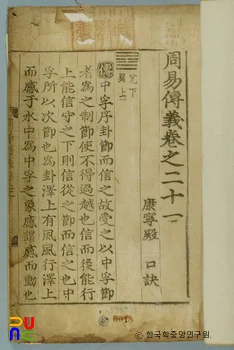 周易傳義卷之二十一
康寧殿 口訣
兌下
巽上
傳中孚序卦節而信之故受之以中孚節
者爲之制節使不得過越也信而後能行
上能信守之下則信從之節而信之也中
孚所以次節也爲卦澤上有風風行澤上
而感于水中爲中孚之象感謂感而動也
한국학중앙연구원